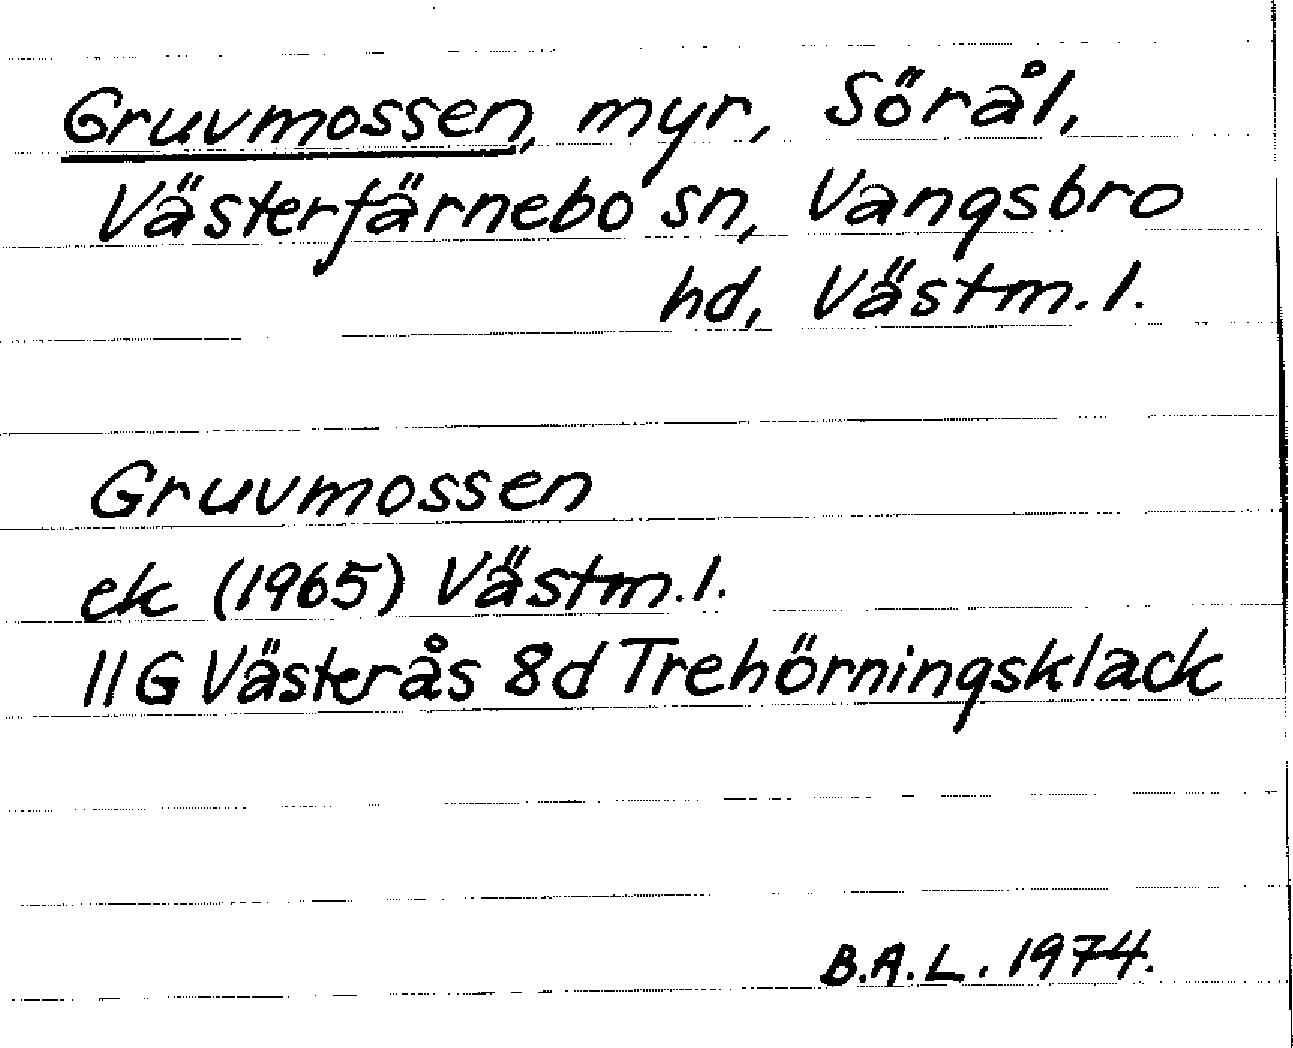 Gruvmossen, myr, Sörål,
Västerfärnebo sn, Vangsbro
hd, Västm. l.
Gruvmossen
ek (1965) Västm. l.
11G Västerås 8d Trehörningsklack
B.A.L. 1974.